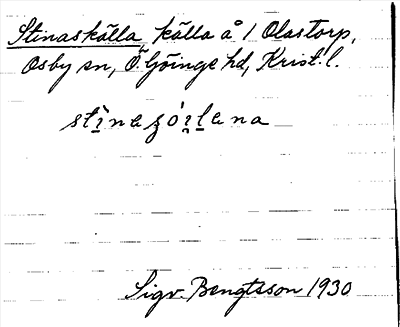 Stinaskälla, källa å 1 Olastorp,
Osby sn, Ö. Göinge hd, Krist. l.
Sigv. Bengtsson 1930